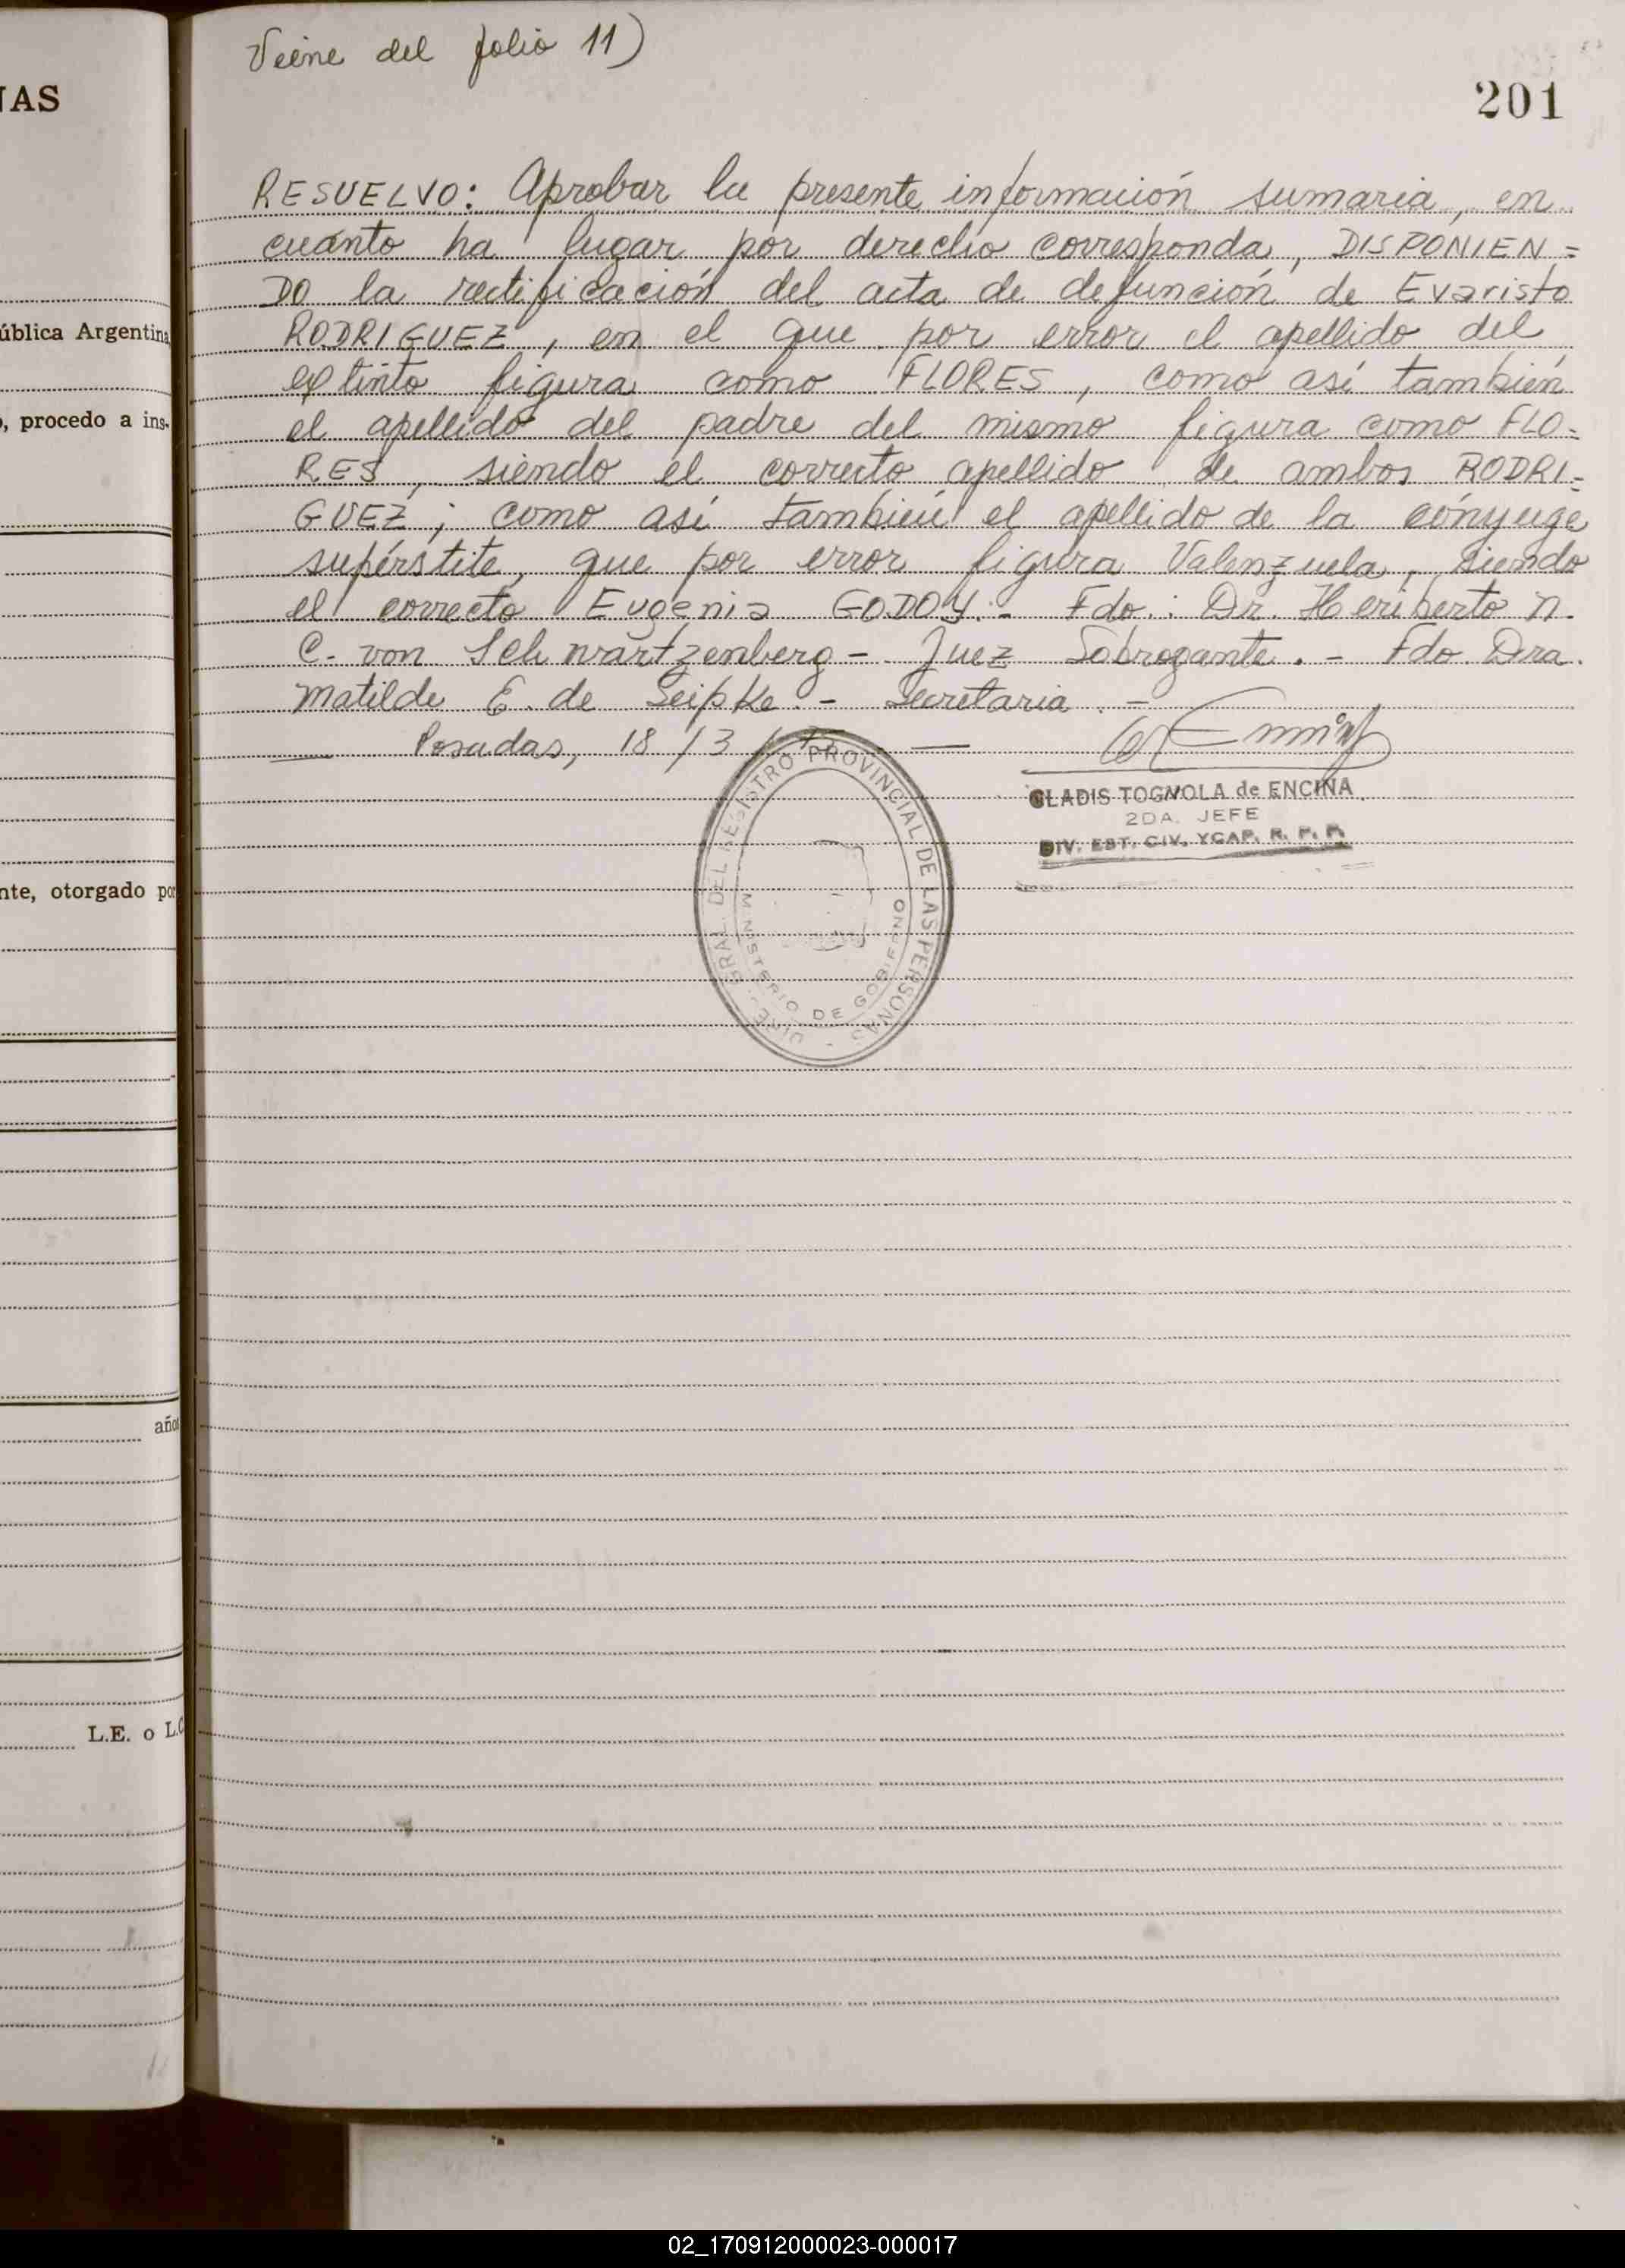 Viene del folio 11)
NAS
201
RESUELVO: Aprobar la presente información sumaria, en
cuánto ha lugar por derecho corresponda, DISPONIEN=
DO la rectificación del acta de defunción de Evaristo
ública Argentina
RODRIGUEZ, en el que por error el apellido del
extinto figura como FLORES, como así también
, procedo a ins-
el apellido del padre del mismo figura como FLO=
RES, siendo el correcto apellido de ambos RODRI=
GUEZ; como así también el apellido de la cónyuge
supérstite, que por error figura Valenzuela, siendo
el correcto Eugenia GODOY.- Fdo.: Dr. Heriberto N.
C. von Schwartzenberg - Juez Sobrogante. - Fdo. Dra.
Matilde E. de Seipke. - Secretaria. -
Posadas, 18/3/
GLADIS TOGNOLA de ENCINA
2DA. JEFE
DIV. EST. CIV. YCAP. R. P. P.
DIREC. GRAL DEL REGISTRO PROVINCIAL DE LAS PERSONAS
MINISTERIO DE GOBIERNO
nte, otorgado por
años
L.E. o L.C
02_170912000023-000017